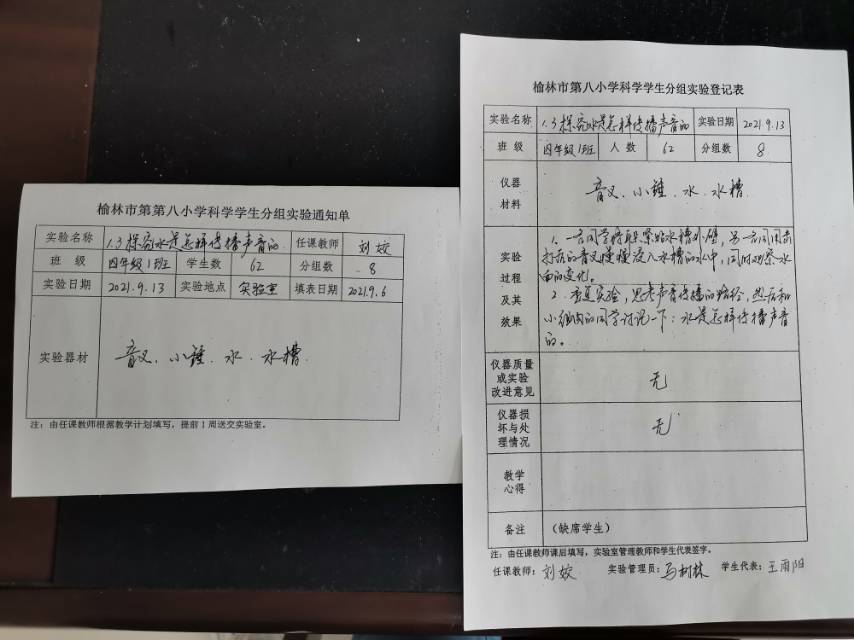 榆林市第第八小学科学学生分组实验通知单
实验名称 1.3探究水是怎样传播声音的 任课教师 刘姣
班 级 四年级1班 学生数 62 分组数 8
实验日期 2021.9.13 实验地点 实验室 填表日期 2021.9.6
实验器材 音叉、小锤、水、水槽
注：由任课教师根据教学计划填写，提前1周送交实验室。
榆林市第八小学科学学生分组实验登记表
实验名称 1.3探究水是怎样传播声音的 实验日期 2021.9.13
班 级 四年级1班 人 数 62 分组数 8
仪器
材料
音叉、小锤、水、水槽
实验
过程
及其
效果
1. 一名同学将耳朵紧贴水槽外壁，另一名同学
打后的音叉慢慢浸入水槽的水中，同时观察水
面的变化。
2. 重复实验，思考声音传播的路径，然后和
小组内的同学讨论一下：水是怎样传播声音
的。
仪器质量
或实验
改进意见
无
仪器损
坏与处
理情况
无
教学
心得
备注 （缺席学生）
注：由任课教师课后填写，实验室管理教师和学生代表签字。
任课教师：刘姣 实验管理员：马树林 学生代表：王雨阳